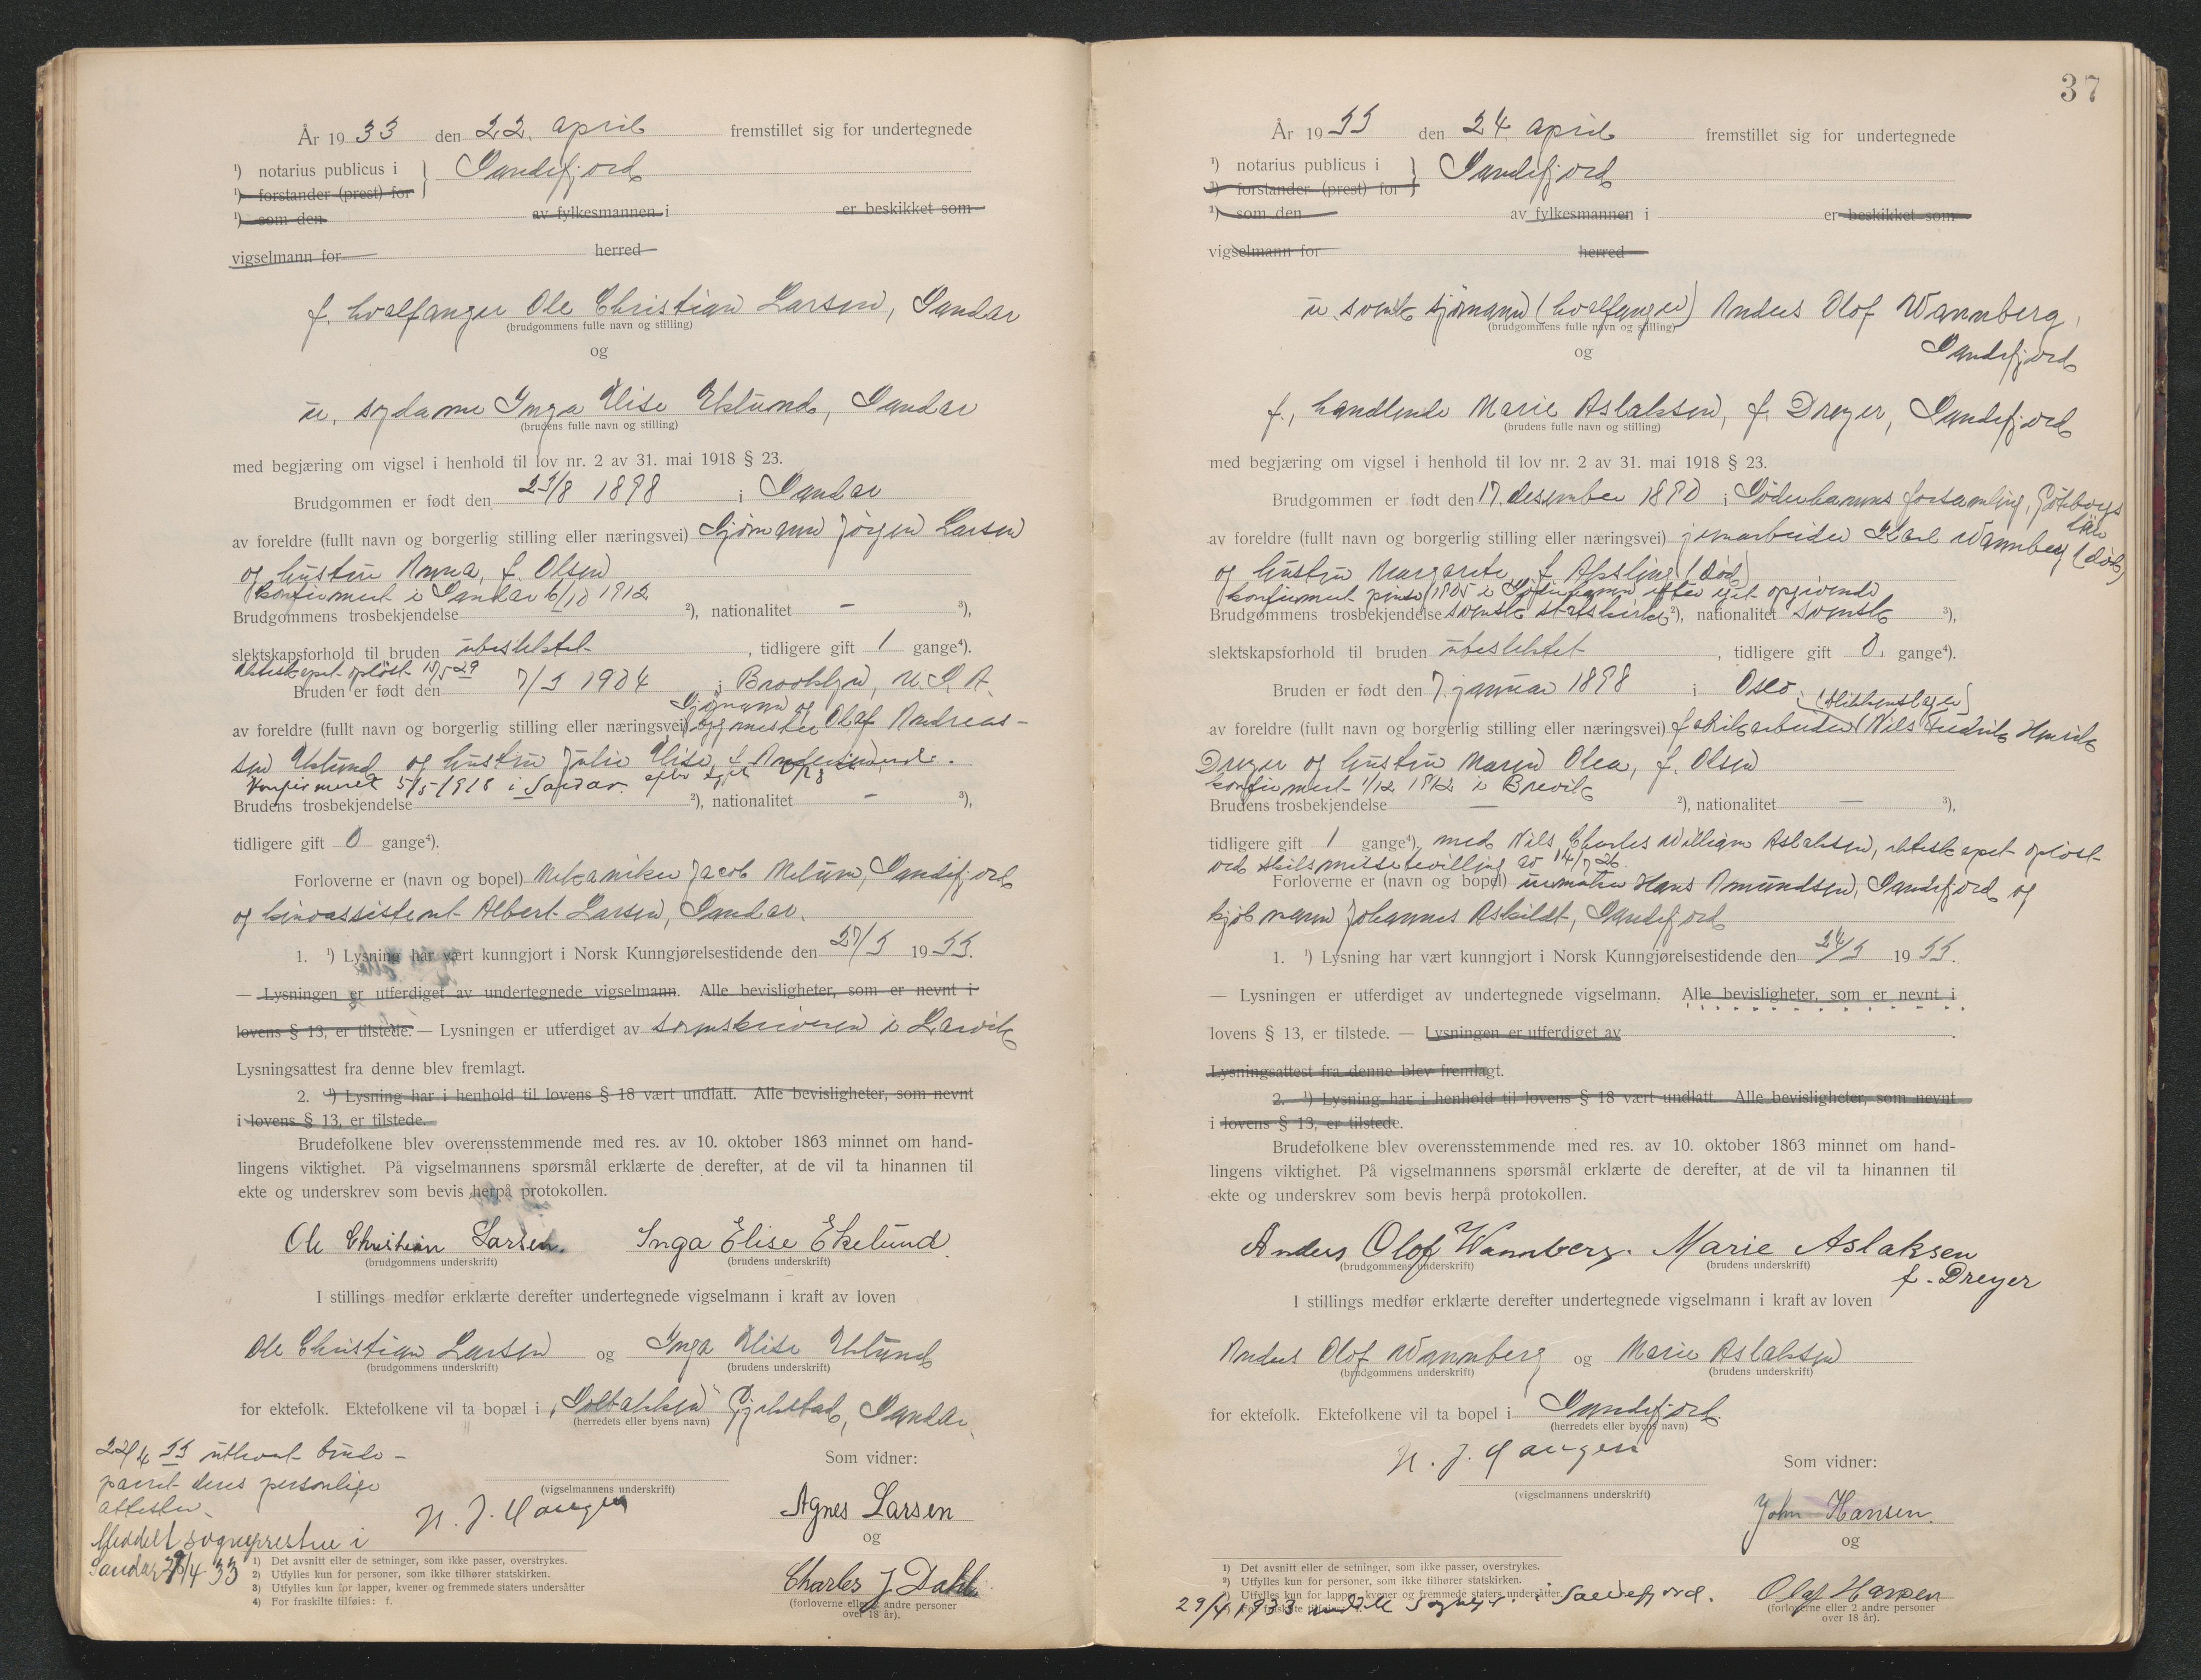 År 1933 den 22. april fremstillet sig for undertegnede
¹) notarius publicus i } Sandefjord
¹) forstander (prest) for
¹) som den av fylkesmannen i er beskikket som
vigselmann for herred
f. hvalfanger Ole Christian Larsen, Sandar
(brudgommens fulle navn og stilling)
og
u. sydame Inga Elise Eklund, Sandar
(brudens fulle navn og stilling)
med begjæring om vigsel i henhold til lov nr. 2 av 31. mai 1918 § 23.
Brudgommen er født den 23/8 1898 i Sandar
av foreldre (fullt navn og borgerlig stilling eller næringsvei) Sjømann Jørgen Larsen
og hustru Anna, f. Olsen
konfirmert i Sandar 6/10 1912
Brudgommens trosbekjendelse ²), nationalitet — ³),
slektskapsforhold til bruden ubeslektet, tidligere gift 1 gange⁴).
ekteskapet opløst 15/5 29
Bruden er født den 7/3 1904 i Brooklyn, U.S.A.
Sjømann og
av foreldre (fullt navn og borgerlig stilling eller næringsvei) Olaf Andreas-
sen Eklund og hustru Julie Elise, f.
Konfirmeret 5/5-1918 i Sandar. efter eget
Brudens trosbekjendelse ²), nationalitet — ³),
tidligere gift 0 gange⁴).
Forloverne er (navn og bopel) Mekaniker Jacob Melum, Sandefjord
og kinoassistent Albert Larsen, Sandar.
1. ¹) Lysning har vært kunngjort i Norsk Kunngjørelsestidende den 27/3 1933.
— Lysningen er utferdiget av undertegnede vigselmann. Alle bevisligheter, som er nevnt i
lovens § 13, er tilstede. — Lysningen er utferdiget av sorenskriveren i Larvik
Lysningsattest fra denne blev fremlagt.
2. ¹) Lysning har i henhold til lovens § 18 vært undlatt. Alle bevisligheter, som nevnt
i lovens § 13, er tilstede.
Brudefolkene blev overensstemmende med res. av 10. oktober 1863 minnet om hand-
lingens viktighet. På vigselmannens spørsmål erklærte de derefter, at de vil ta hinannen til
ekte og underskrev som bevis herpå protokollen.
Ole Christian Larsen. Inga Elise Ekelund.
(brudgommens underskrift) (brudens underskrift)
I stillings medfør erklærte derefter undertegnede vigselmann i kraft av loven
Ole Christian Larsen og Inga Elise Eklund
(brudgommens underskrift) (brudens underskrift)
for ektefolk. Ektefolkene vil ta bopæl i "Solbakken" Gjekstad, Sandar.
(herredets eller byens navn)
22/4 33 utlevert brude-
paret deres personlige
attester.
Meddelt sognepresten i
Sandar 29/4 33
Som vidner:
(vigselmannens underskrift)
N. J. Haugen
Agnes Larsen
og
Charles J. Dahl
(forloverne eller 2 andre personer
over 18 år).
1) Det avsnitt eller de setninger, som ikke passer, overstrykes.
2) Utfylles kun for personer, som ikke tilhører statskirken.
3) Utfylles kun for lapper, kvener og fremmede staters undersåtter
4) For fraskilte tilføies: f.
37
År 1933 den 24. april fremstillet sig for undertegnede
¹) notarius publicus i } Sandefjord
¹) forstander (prest) for
¹) som den av fylkesmannen i er beskikket som
vigselmann for herred
u svensk sjømann (hvalfanger) Anders Olof Wannberg,
(brudgommens fulle navn og stilling)
og Sandefjord
f., handlende Marie Aslaksen, f. Dreyer, Sandefjord
(brudens fulle navn og stilling)
med begjæring om vigsel i henhold til lov nr. 2 av 31. mai 1918 § 23.
Brudgommen er født den 17. desember 1890 i Söderhamns forsamling, Göteborgs
län
av foreldre (fullt navn og borgerlig stilling eller næringsvei) jernarbeider Karl Wannberg (død)
og hustru Margareta, f. (død)
konfirmert pinse 1905 i Söderhamn efter eget opgivende
Brudgommens trosbekjendelse svensk statskirke ²), nationalitet svensk ³),
slektskapsforhold til bruden ubeslektet, tidligere gift 0. gange⁴).
Bruden er født den 7. januar 1898 i Oslo.
av foreldre (fullt navn og borgerlig stilling eller næringsvei) fabrikarbeider Nils Fredrik Henrik
Dreyer og hustru Maren Olea, f. Olsen
konfirmert 1/12 1912 i Brevik
Brudens trosbekjendelse — ²), nationalitet — ³),
tidligere gift 1 gange⁴). med Nils Charles William Aslaksen, ekteskapet opløst
ved skilsmissebevilling av 14/7 26.
Forloverne er (navn og bopel) urmaker Hans Amundsen, Sandefjord og
kjøbmann Johannes Askildt, Sandefjord
1. ¹) Lysning har vært kunngjort i Norsk Kunngjørelsestidende den 24/3 1933.
— Lysningen er utferdiget av undertegnede vigselmann. Alle bevisligheter, som er nevnt i
lovens § 13, er tilstede. — Lysningen er utferdiget av
Lysningsattest fra denne blev fremlagt.
2. ¹) Lysning har i henhold til lovens § 18 vært undlatt. Alle bevisligheter, som nevnt
i lovens § 13, er tilstede.
Brudefolkene blev overensstemmende med res. av 10. oktober 1863 minnet om hand-
lingens viktighet. På vigselmannens spørsmål erklærte de derefter, at de vil ta hinannen til
ekte og underskrev som bevis herpå protokollen.
Anders Olof Wannberg. Marie Aslaksen
(brudgommens underskrift) (brudens underskrift)
f. Dreyer
I stillings medfør erklærte derefter undertegnede vigselmann i kraft av loven
Anders Olof Wannberg og Marie Aslaksen
(brudgommens underskrift) (brudens underskrift)
for ektefolk. Ektefolkene vil ta bopel i Sandefjord.
(herredets eller byens navn)
N. J. Haugen
Som vidner:
(vigselmannens underskrift)
John Hansen.
og
Olaf Hansen
(forloverne eller 2 andre personer
over 18 år).
1) Det avsnitt eller de setninger, som ikke passer, overstrykes.
2) Utfylles kun for personer, som ikke tilhører statskirken.
3) Utfylles kun for lapper, kvener og fremmede staters undersåtter
4) For fraskilte tilføies: f.
29/4 1933 meddelt sognepr. i Sandefjord.